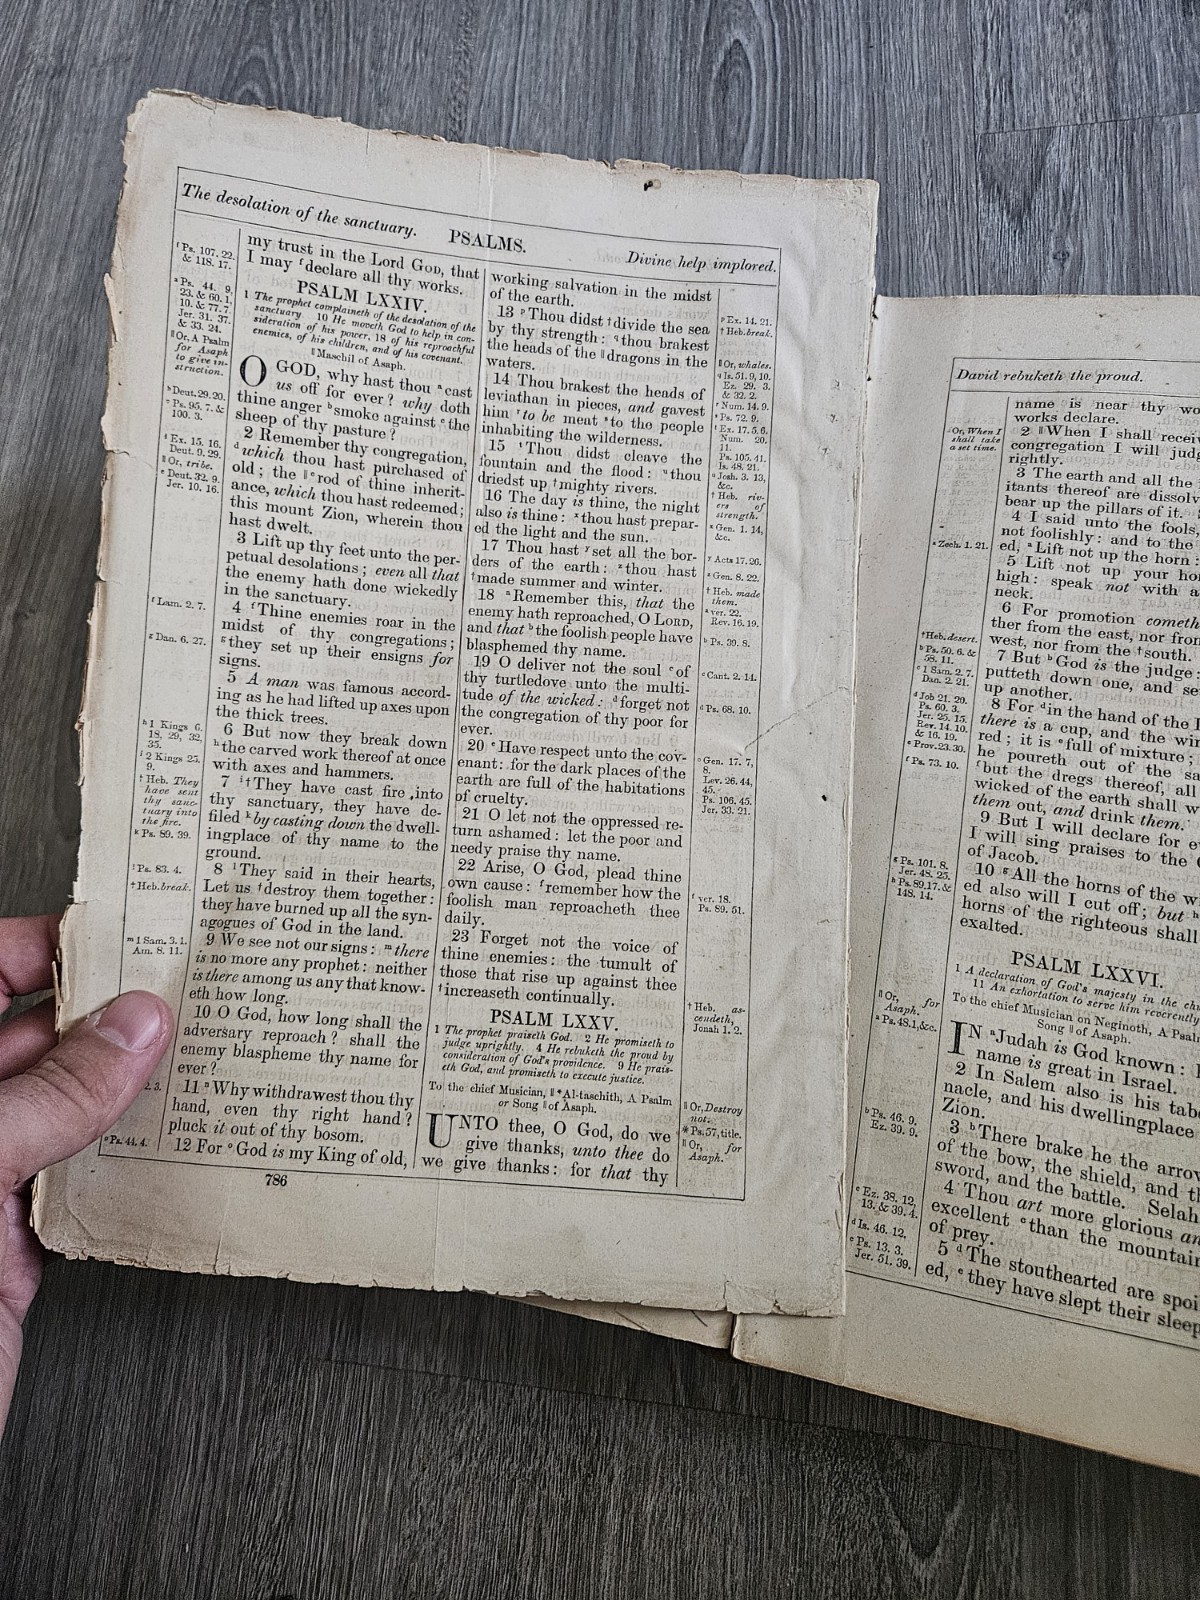 The desolation of the sanctuary. PSALMS. Divine help implored.
f Ps. 107. 22.
& 118. 17.
a Ps. 44. 9,
23. & 60. 1,
10. & 77. 7.
Jer. 31. 37.
& 33. 24.
‖ Or, A Psalm
for Asaph
to give in-
struction.
b Deut. 29. 20.
c Ps. 95. 7. &
100. 3.
d Ex. 15. 16.
Deut. 9. 29.
‖ Or, tribe.
e Deut. 32. 9.
Jer. 10. 16.
f Lam. 2. 7.
g Dan. 6. 27.
h 1 Kings 6.
18. 29, 32,
35.
i 2 Kings 25.
9.
† Heb. They
have sent
thy sanc-
tuary into
the fire.
k Ps. 89. 39.
l Ps. 83. 4.
† Heb. break.
m 1 Sam. 3. 1.
Am. 8. 11.
2. 3.
o Ps. 44. 4.
my trust in the Lord GOD, that
I may f declare all thy works.
PSALM LXXIV.
1 The prophet complaineth of the desolation of the
sanctuary. 10 He moveth God to help in con-
sideration of his power, 18 of his reproachful
enemies, of his children, and of his covenant.
‖ Maschil of Asaph.
O GOD, why hast thou a cast
us off for ever? why doth
thine anger b smoke against c the
sheep of thy pasture?
2 Remember thy congregation,
d which thou hast purchased of
old; the ‖ e rod of thine inherit-
ance, which thou hast redeemed;
this mount Zion, wherein thou
hast dwelt.
3 Lift up thy feet unto the per-
petual desolations; even all that
the enemy hath done wickedly
in the sanctuary.
4 f Thine enemies roar in the
midst of thy congregations;
g they set up their ensigns for
signs.
5 A man was famous accord-
ing as he had lifted up axes upon
the thick trees.
6 But now they break down
h the carved work thereof at once
with axes and hammers.
7 i † They have cast fire into
thy sanctuary, they have de-
filed k by casting down the dwell-
ingplace of thy name to the
ground.
8 l They said in their hearts,
Let us † destroy them together:
they have burned up all the syn-
agogues of God in the land.
9 We see not our signs: m there
is no more any prophet: neither
is there among us any that know-
eth how long.
10 O God, how long shall the
adversary reproach? shall the
enemy blaspheme thy name for
ever?
11 n Why withdrawest thou thy
hand, even thy right hand?
pluck it out of thy bosom.
12 For o God is my King of old,
working salvation in the midst
of the earth.
13 p Thou didst † divide the sea
by thy strength: q thou brakest
the heads of the ‖ dragons in the
waters.
14 Thou brakest the heads of
leviathan in pieces, and gavest
him r to be meat s to the people
inhabiting the wilderness.
15 t Thou didst cleave the
fountain and the flood: u thou
driedst up † mighty rivers.
16 The day is thine, the night
also is thine: x thou hast prepar-
ed the light and the sun.
17 Thou hast y set all the bor-
ders of the earth: z thou hast
† made summer and winter.
18 a Remember this, that the
enemy hath reproached, O LORD,
and that b the foolish people have
blasphemed thy name.
19 O deliver not the soul c of
thy turtledove unto the multi-
tude of the wicked: d forget not
the congregation of thy poor for
ever.
20 e Have respect unto the cov-
enant: for the dark places of the
earth are full of the habitations
of cruelty.
21 O let not the oppressed re-
turn ashamed: let the poor and
needy praise thy name.
22 Arise, O God, plead thine
own cause: f remember how the
foolish man reproacheth thee
daily.
23 Forget not the voice of
thine enemies: the tumult of
those that rise up against thee
† increaseth continually.
PSALM LXXV.
1 The prophet praiseth God. 2 He promiseth to
judge uprightly. 4 He rebuketh the proud by
consideration of God's providence. 9 He prais-
eth God, and promiseth to execute justice.
To the chief Musician, ‖ * Al-taschith, A Psalm
or Song ‖ of Asaph.
UNTO thee, O God, do we
give thanks, unto thee do
we give thanks: for that thy
p Ex. 14. 21.
† Heb. break.
‖ Or, whales.
q Is. 51. 9, 10.
Ez. 29. 3.
& 32. 2.
r Num. 14. 9.
s Ps. 72. 9.
t Ex. 17. 5, 6.
Num. 20.
11.
Ps. 105. 41.
Is. 48. 21.
u Josh. 3. 13,
&c.
† Heb. riv-
ers of
strength.
x Gen. 1. 14,
&c.
y Acts 17. 26.
z Gen. 8. 22.
† Heb. made
them.
a ver. 22.
Rev. 16. 19.
b Ps. 39. 8.
c Cant. 2. 14.
d Ps. 68. 10.
e Gen. 17. 7,
8.
Lev. 26. 44,
45.
Ps. 106. 45.
Jer. 33. 21.
f ver. 18.
Ps. 89. 51.
† Heb. as-
cendeth,
Jonah 1. 2.
‖ Or, Destroy
not.
* Ps. 57, title.
‖ Or, for
Asaph.
786
David rebuketh the proud.
‖ Or, When I
shall take
a set time.
a Zech. 1. 21.
† Heb. desert.
b Ps. 50. 6. &
58. 11.
c 1 Sam. 2. 7.
Dan. 2. 21.
d Job 21. 20.
Ps. 60. 3.
Jer. 25. 15.
Rev. 14. 10.
& 16. 19.
e Prov. 23. 30.
f Ps. 73. 10.
g Ps. 101. 8.
Jer. 48. 25.
h Ps. 89. 17. &
148. 14.
‖ Or, for
Asaph.
a Ps. 48. 1, &c.
b Ps. 46. 9.
Ez. 39. 9.
c Ez. 38. 12,
13. & 39. 4.
d Is. 46. 12.
e Ps. 13. 3.
Jer. 51. 39.
name is near thy
works declare.
2 ‖ When I shall
congregation I will
rightly.
3 The earth and all the
itants thereof are
bear up the pillars of it.
4 I said unto the fools,
not foolishly: and to the
ed, a Lift not up the horn:
5 Lift not up your
high: speak not with a
neck.
6 For promotion
ther from the east, nor
west, nor from the † south.
7 But b God is the judge:
putteth down one, and
up another.
8 For d in the hand of the
there is a cup, and the
red; it is e full of mixture;
he poureth out of the
f but the dregs thereof, all
wicked of the earth shall
them out, and drink them.
9 But I will declare for
I will sing praises to the
of Jacob.
10 g All the horns of the
ed also will I cut off; but h
horns of the righteous shall
exalted.
PSALM LXXVI.
1 A declaration of God's majesty in the
11 An exhortation to serve him reverently
To the chief Musician on Neginoth, A
Song ‖ of Asaph.
IN a Judah is God known:
name is great in Israel.
2 In Salem also is his
nacle, and his dwellingplace
Zion.
3 b There brake he the
of the bow, the shield, and
sword, and the battle. Selah
4 Thou art more glorious
excellent c than the
of prey.
5 d The stouthearted are
ed, e they have slept their